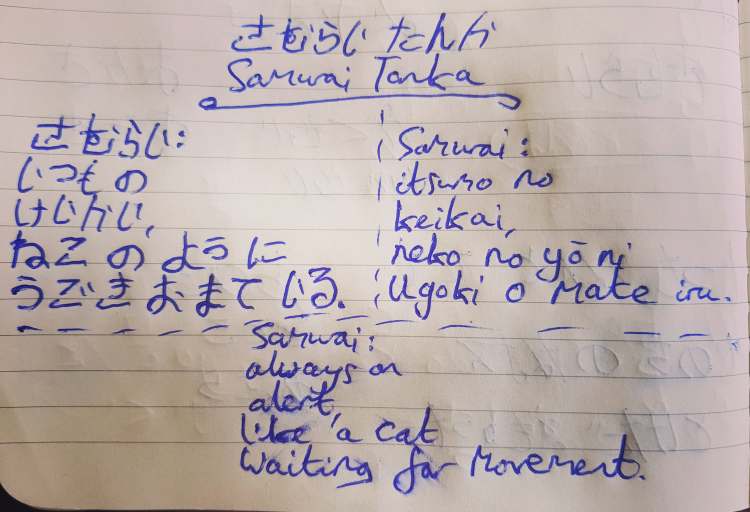 さむらい たんか
Samurai Tanka
さむらい:
いつもの
けいかい,
ねこのように
うごきおまている.
Samurai:
itsumo no
keikai,
neko no yō ni
Ugoki o mate iru.
Samurai:
always on
alert,
like a cat
waiting for movement.